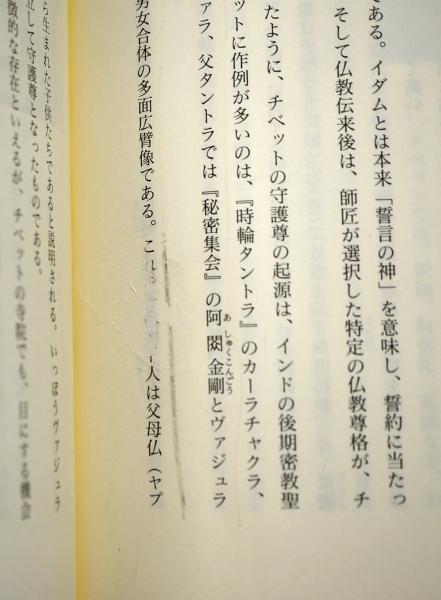 である。イダムとは本来「誓言の神」を意味し、誓約に当たっ
そして仏教伝来後は、師匠が選択した特定の仏教尊格が、チ
たように、チベットの守護尊の起源は、インドの後期密教聖
ットに作例が多いのは、『時輪タントラ』のカーラチャクラ、
ァラ、父タントラでは『秘密集会』の阿閦金剛とヴァジュラ
あしゅくこんごう
男女合体の多面広臂像である。これ 人は父母仏(ヤブ
ら生まれた子供たちであると説明される。いっぽうヴァジュラ
立して守護尊となったものである。
徴的な存在といえるが、チベットの寺院でも、目にする機会